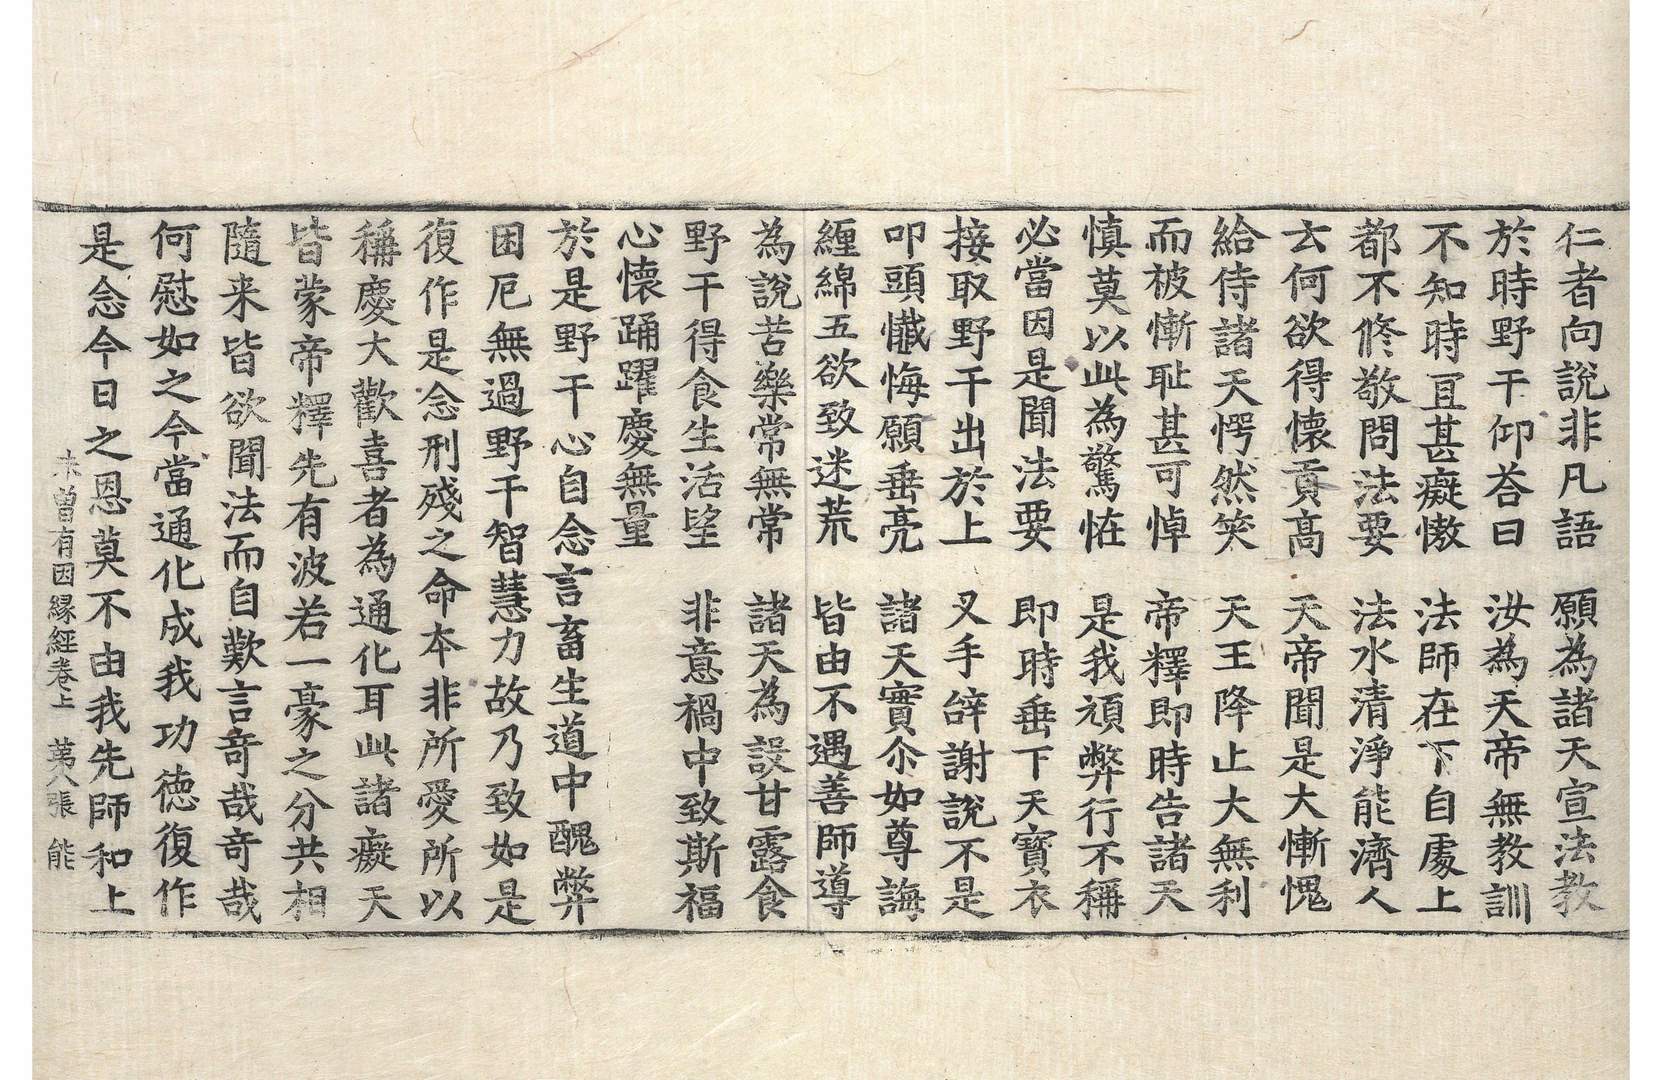 仁者向說非凡語　願為諸天宣法教
於時野干仰荅曰　汝為天帝無教訓
不知時冝甚癡慠　法師在下自處上
都不修敬問法要　法水清淨能濟人
云何欲得懷貢高　天帝聞是大慚愧
給侍諸天愕然笑　天王降止大無利
而被慚耻甚可悼　帝釋即時告諸天
慎莫以此為驚恠　是我頑弊行不稱
必當因是聞法要　即時垂下天寶衣
接取野干出於上　叉手辝謝說不是
叩頭懺悔願垂亮　諸天實尒如尊誨
纏綿五欲致迷荒　皆由不遇善師導
為說苦樂常無常　諸天為設甘露食
野干得食生活望　非意禍中致斯福
心懷踊躍慶無量
於是野干心自念言畜生道中醜弊
困厄無過野干智慧力故乃致如是
復作是念刑殘之命本非所愛所以
稱慶大歡喜者為通化耳此諸癡天
皆蒙帝釋先有波若一豪之分共相
隨来皆欲聞法而自歎言竒哉竒哉
何慰如之今當通化成我功德復作
是念今日之恩莫不由我先師和上
未曾有因縁經卷上　苐八張　能